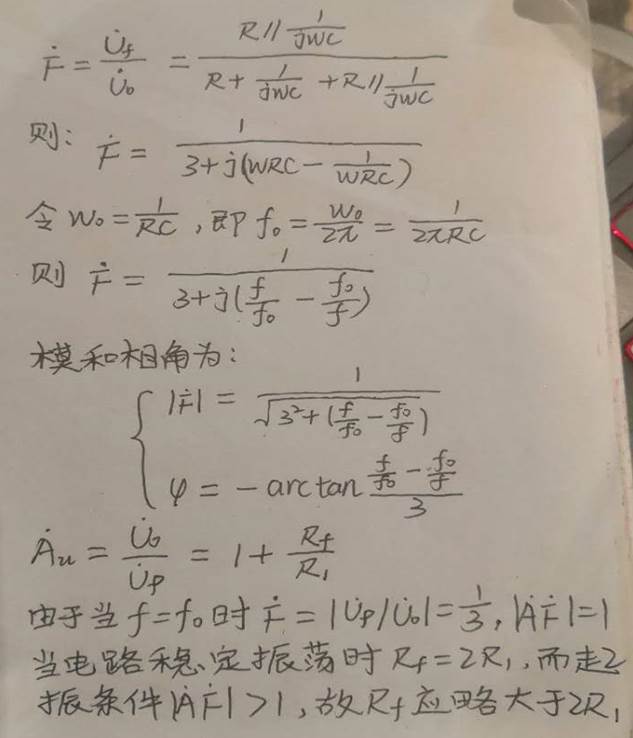 Ḟ = U̇f/U̇o = (R // 1/(jwc)) / (R + 1/(jwc) + R // 1/(jwc))
则: Ḟ = 1/(3+j(WRC - 1/(WRC)))
令 W₀ = 1/(RC), 即 f₀ = W₀/(2π) = 1/(2πRC)
则 Ḟ = 1/(3+j(f/f₀ - f₀/f))
模和相角为:
|Ḟ| = 1/√(3²+(f/f₀ - f₀/f))
φ = -arctan ((f/f₀ - f₀/f)/3)
Ȧu = U̇o/U̇p = 1 + Rf/R₁
由于当 f=f₀时 Ḟ = |U̇p/U̇o| = 1/3, |ȦḞ|=1
当电路稳定振荡时 Rf=2R₁, 而起
振条件|ȦḞ|>1, 故Rf应略大于2R₁